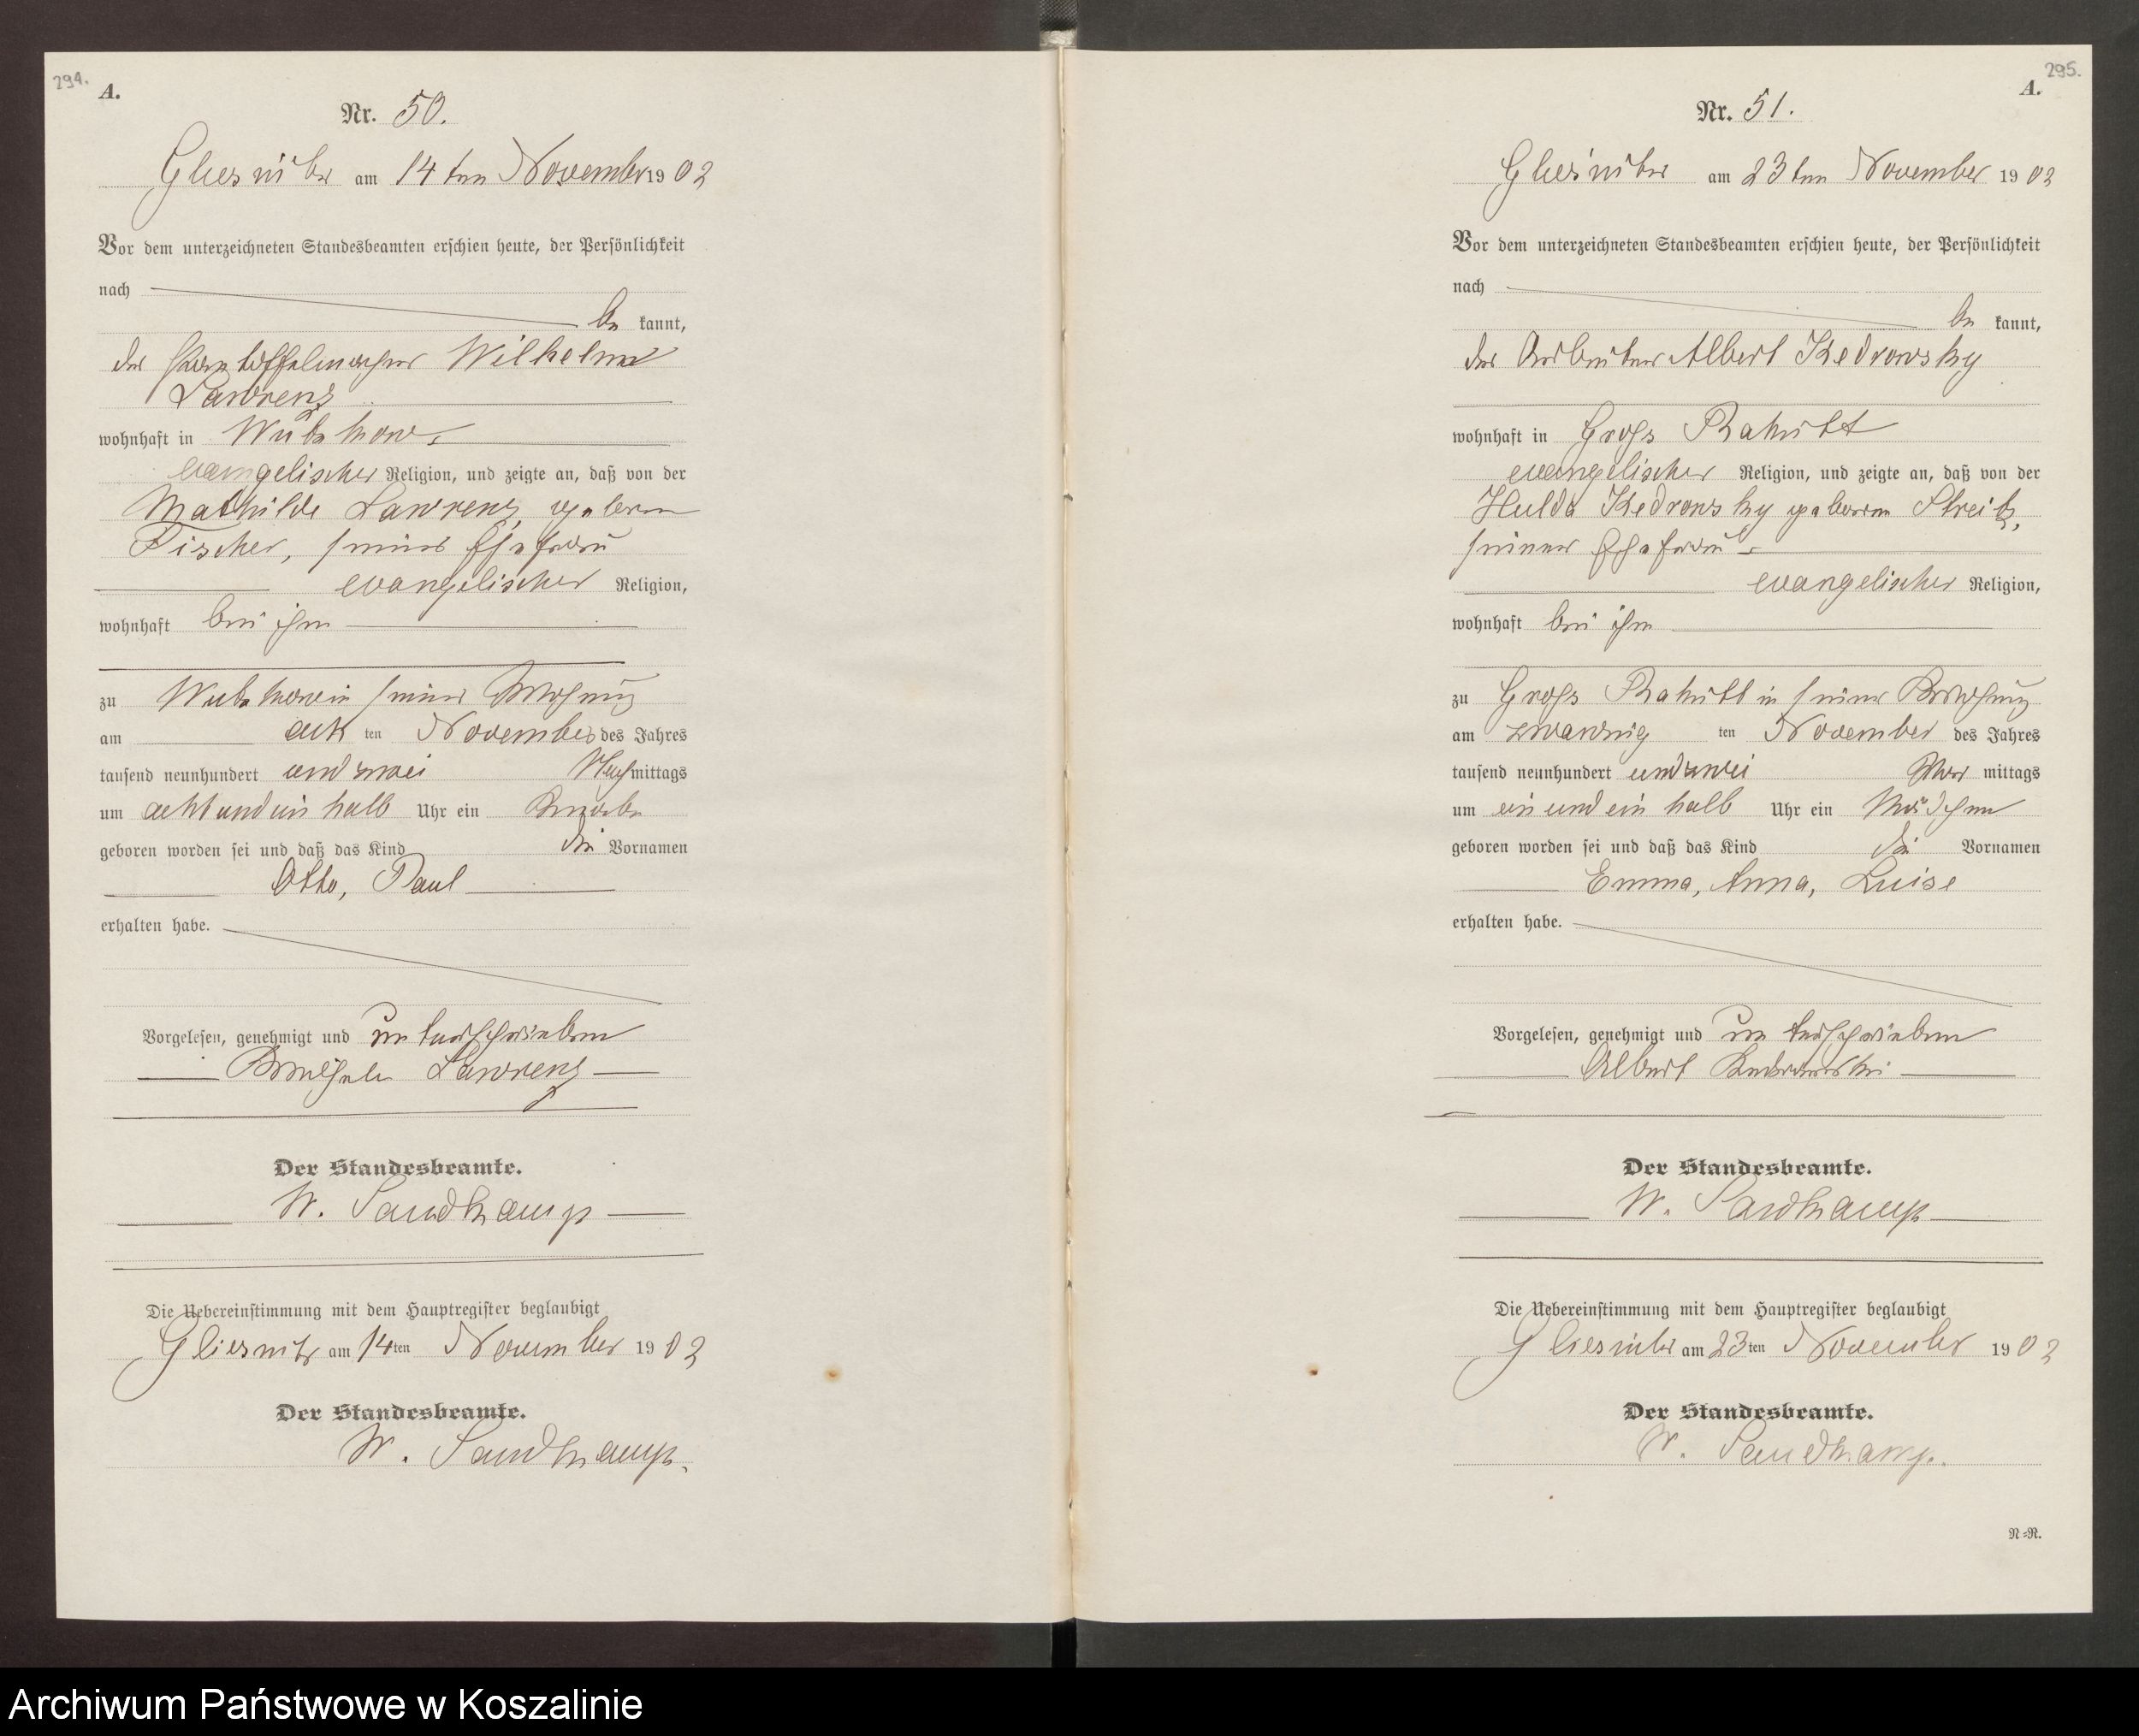 294.
A.
Nr. 50.
Gliesnitz am 14ten November 1902
Vor dem unterzeichneten Standesbeamten erschien heute, der Persönlichkeit
nach
be kannt,
der Pantoffelmacher Wilhelm
Lawrenz
wohnhaft in Wutzkow
evangelischer Religion, und zeigte an, daß von der
Mathilde Lawrenz geboren
Fischer, seiner Ehefrau
evangelischer Religion,
wohnhaft bei ihm
zu Wutzkow in seiner Wohnung
am ten November des Jahres
tausend neunhundert und zwei Nachmittags
um acht und ein halb Uhr ein Knabe
geboren worden sei und daß das Kind die Vornamen
Otto, Paul
erhalten habe.
Vorgelesen, genehmigt und unterschrieben
Wilhelm Lawrenz
Der Standesbeamte.
W. Sandkamp
Die Uebereinstimmung mit dem Hauptregister beglaubigt
Gliesnitz am 14ten November 1902
Der Standesbeamte.
W. Sandkamp.
295.
A.
Nr. 51.
Gliesnitz am 23ten November 1902
Vor dem unterzeichneten Standesbeamten erschien heute, der Persönlichkeit
nach
be kannt,
der Arbeiter Albert Kedrowsky
wohnhaft in Gross Rakitt
evangelischer Religion, und zeigte an, daß von der
Hulda Kedrowsky geboren Streitz,
seiner Ehefrau
evangelischer Religion,
wohnhaft bei ihm
zu Gross Rakitt in seiner Wohnung
am zwanzig ten November des Jahres
tausend neunhundert und zwei Vor mittags
um ein und ein halb Uhr ein Mädchen
geboren worden sei und daß das Kind die Vornamen
Emma, Anna, Luise
erhalten habe.
Vorgelesen, genehmigt und unterschrieben
Albert Kedrowski
Der Standesbeamte.
W. Sandkamp
Die Uebereinstimmung mit dem Hauptregister beglaubigt
Gliesnitz am 23ten November 1902
Der Standesbeamte.
W. Sandkamp.
N=R.
Archiwum Państwowe w Koszalinie